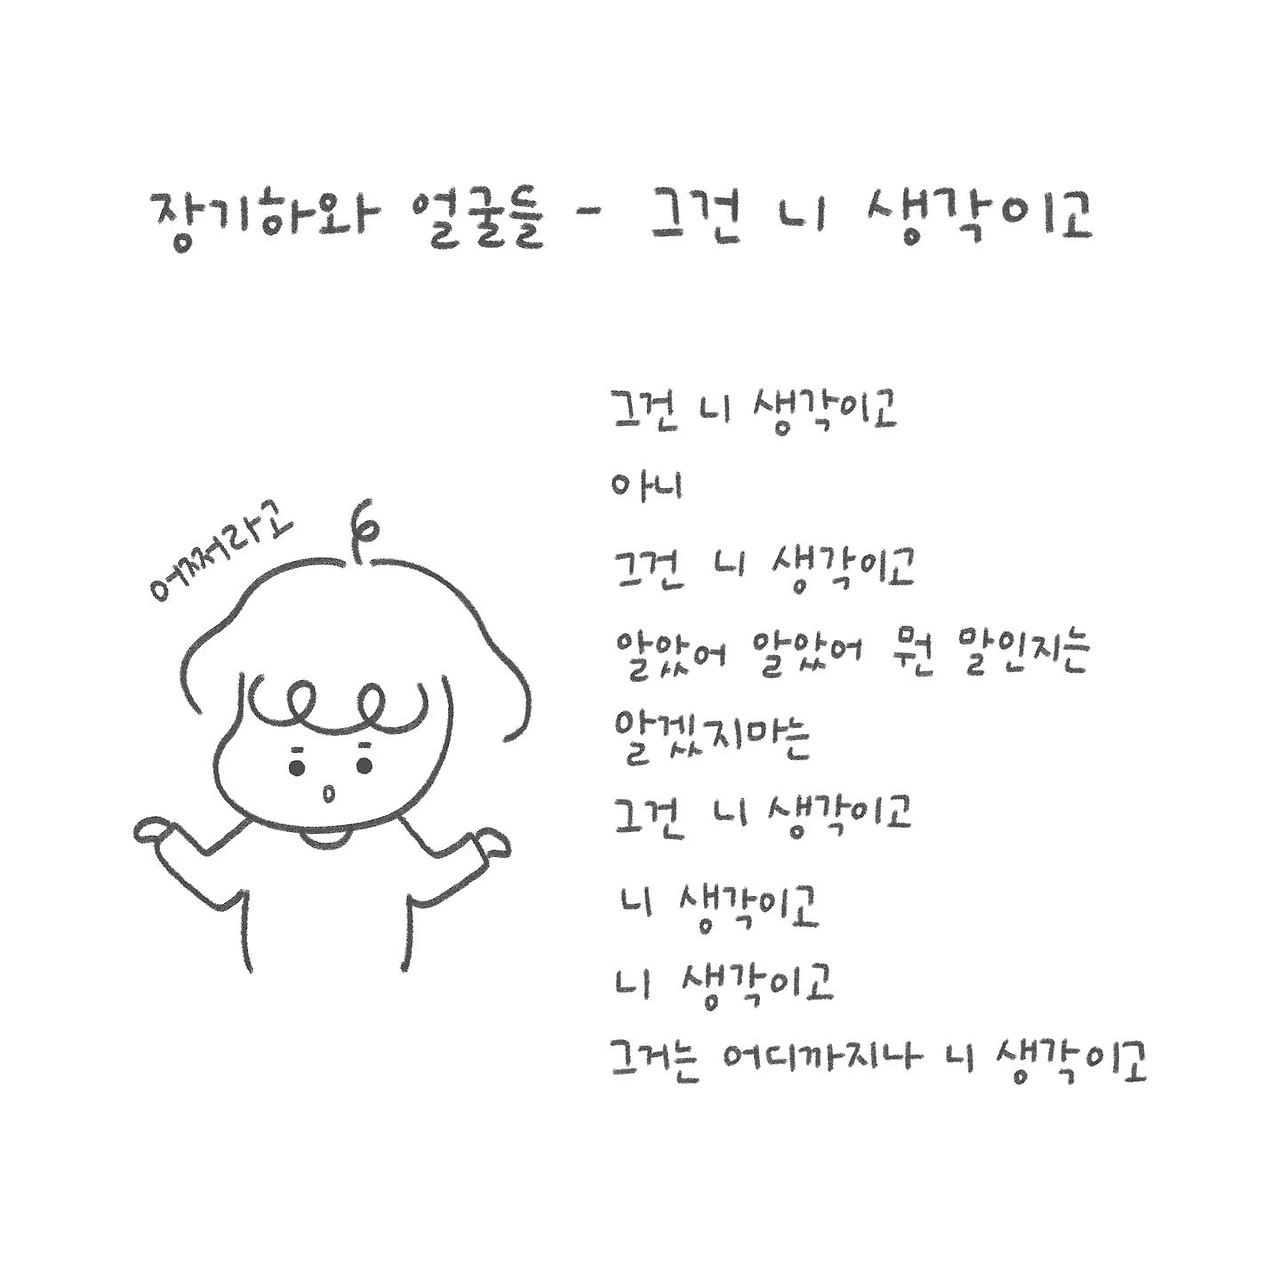 장기하와 얼굴들 - 그건 니 생각이고
어쩌라고
그건 니 생각이고
아니
그건 니 생각이고
알았어 알았어 뭔 말인지는
알겠지마는
그건 니 생각이고
니 생각이고
니 생각이고
그거는 어디까지나 니 생각이고